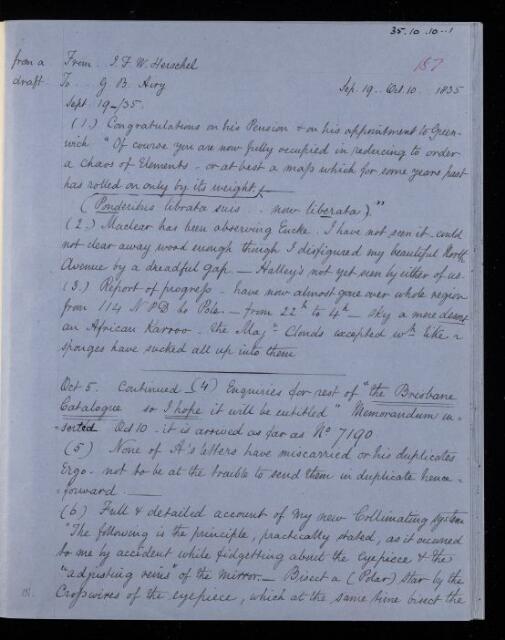 35.10.10..1
187
from a
draft.
From J. F. W. Herschel
To... G. B. Airy
Sep. 19.. Oct. 10. 1835
Sept. 19-/35.
(1.) Congratulations on his Pension & on his appointment to Green-
wich "Of course you are now fully occupied in reducing to order
a chaos of Elements - or at best a mass which for some years past
has rolled on only by its weight,
(Ponderibus librata suis .. now liberata)."
(2.) Maclear has been observing Encke. I have not seen it could
not clear away wood enough though I disfigured my beautiful North
Avenue by a dreadful gap. — Halley's not yet seen by either of us.
(3.) Report of progress - have now almost gone over whole region
from 114 N P D to Pole. — from 22h to 4h — sky a mere desert
an African Karroo - the Maj.n Clouds excepted wh like
sponges have sucked all up into them
Oct 5. Continued - (4) Enquiries for rest of "the Brisbane
Catalogue so I hope it will be entitled" Memorandum in-
-serted Oct 10 - it is arrived as far as No 7190
(5) None of A's letters have miscarried or his duplicates
Ergo - not to be at the trouble to send them in duplicate hence-
-forward. —
(6) Full & detailed account of my new Collimating system
"The following is the principle, practically stated, as it occurred
to me by accident while fidgetting about the eyepiece & the
"adjusting reins" of the mirror. — Bisect a (Polar) star by the
Crosswires of the eyepiece, which at the same time bisect the